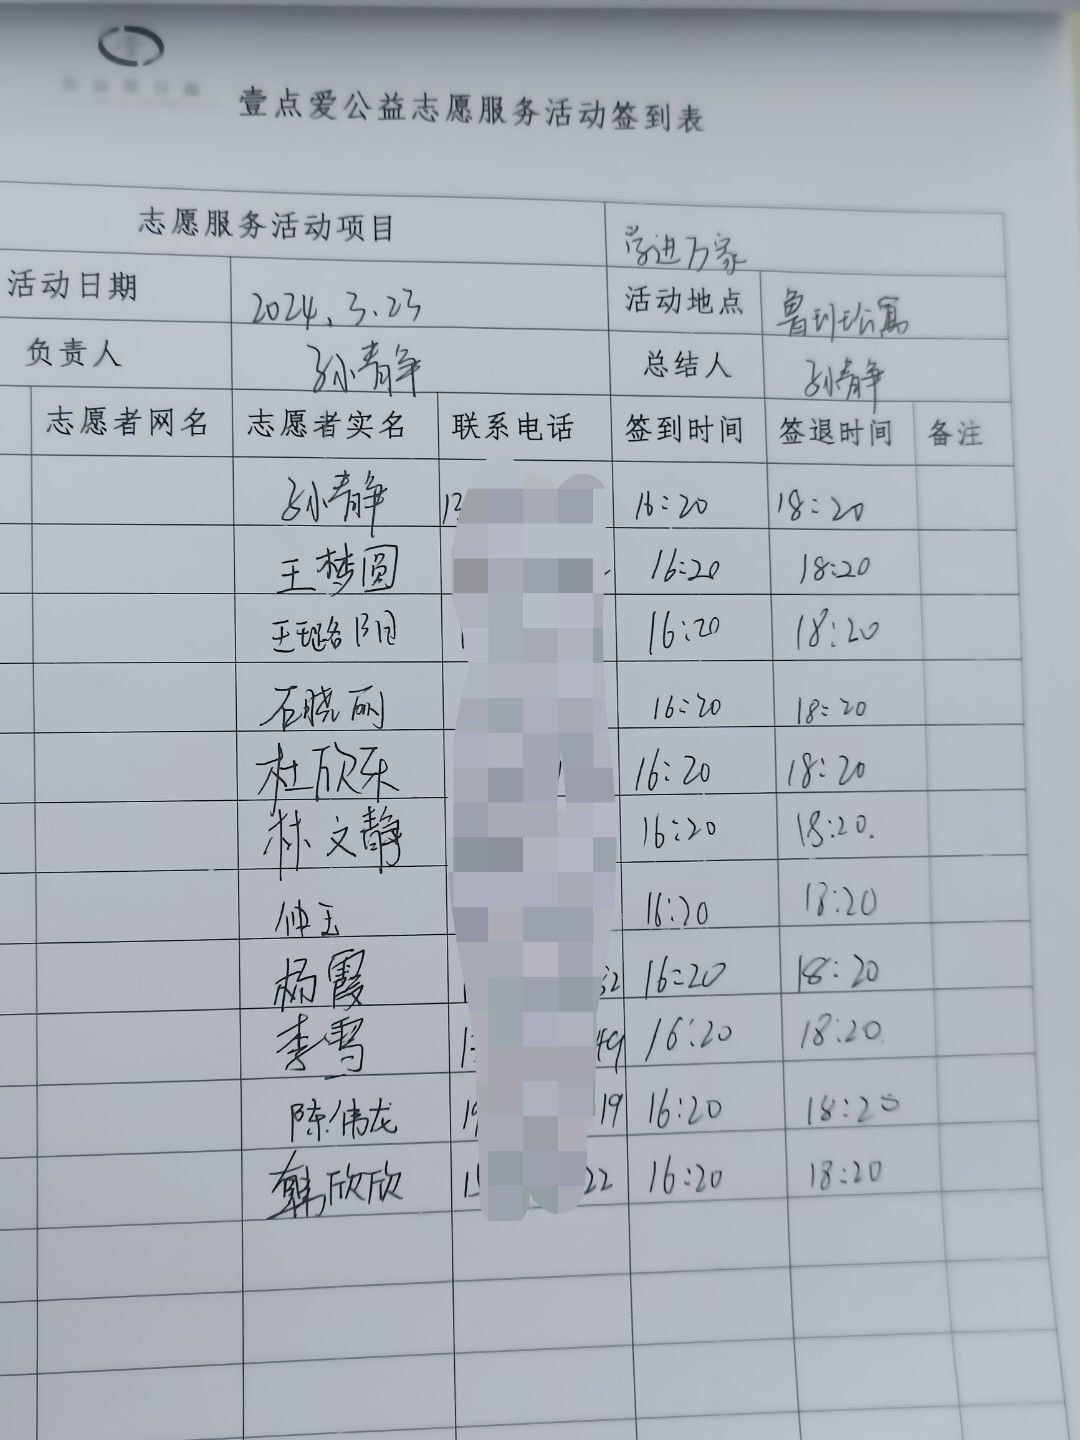 壹点爱公益志愿服务活动签到表
志愿服务活动项目 学进万家
活动日期 2024.3.23 活动地点 鲁班公寓
负责人 孙青争 总结人 孙青争
志愿者网名 志愿者实名 联系电话 签到时间 签退时间 备注
孙青争 13 16:20 18:20
王梦圆 16:20 18:20
王璐阳 1 16:20 18:20
石晓丽 16:20 18:20
杜欣乐 16:20 18:20
林文静 16:20 18:20.
仲玉 16:20 18:20
杨霞 1 32 16:20 18:20
李雪 1 49 16:20 18:20
陈伟龙 19 19 16:20 18:20
韩欣欣 15 22 16:20 18:20